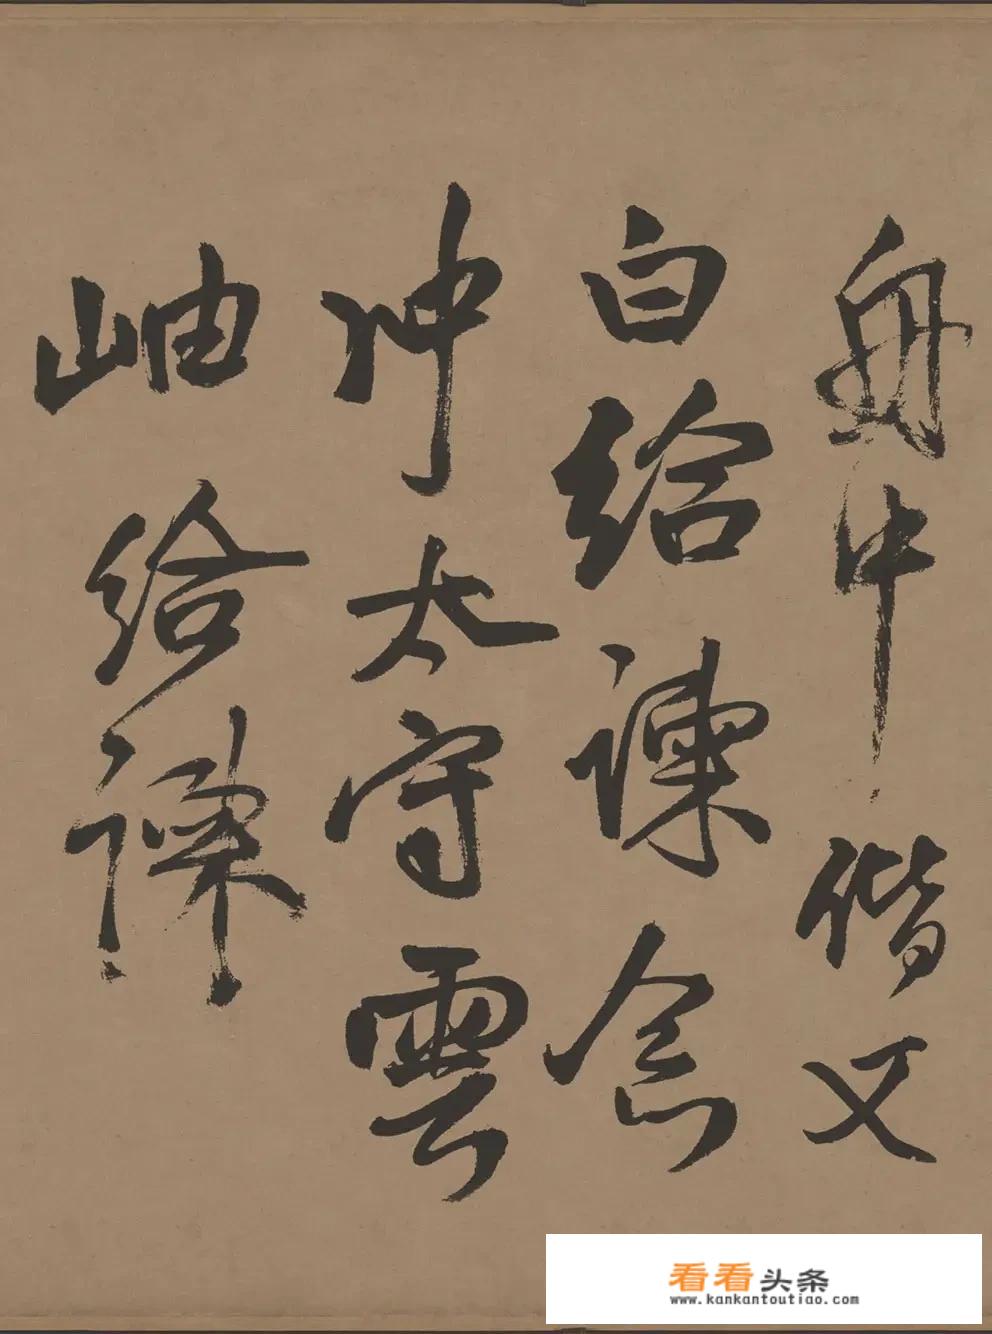 舟中偕文
白給諫念
冲太守雲
岫給諫
看看头条
www.kankantoutiao.com